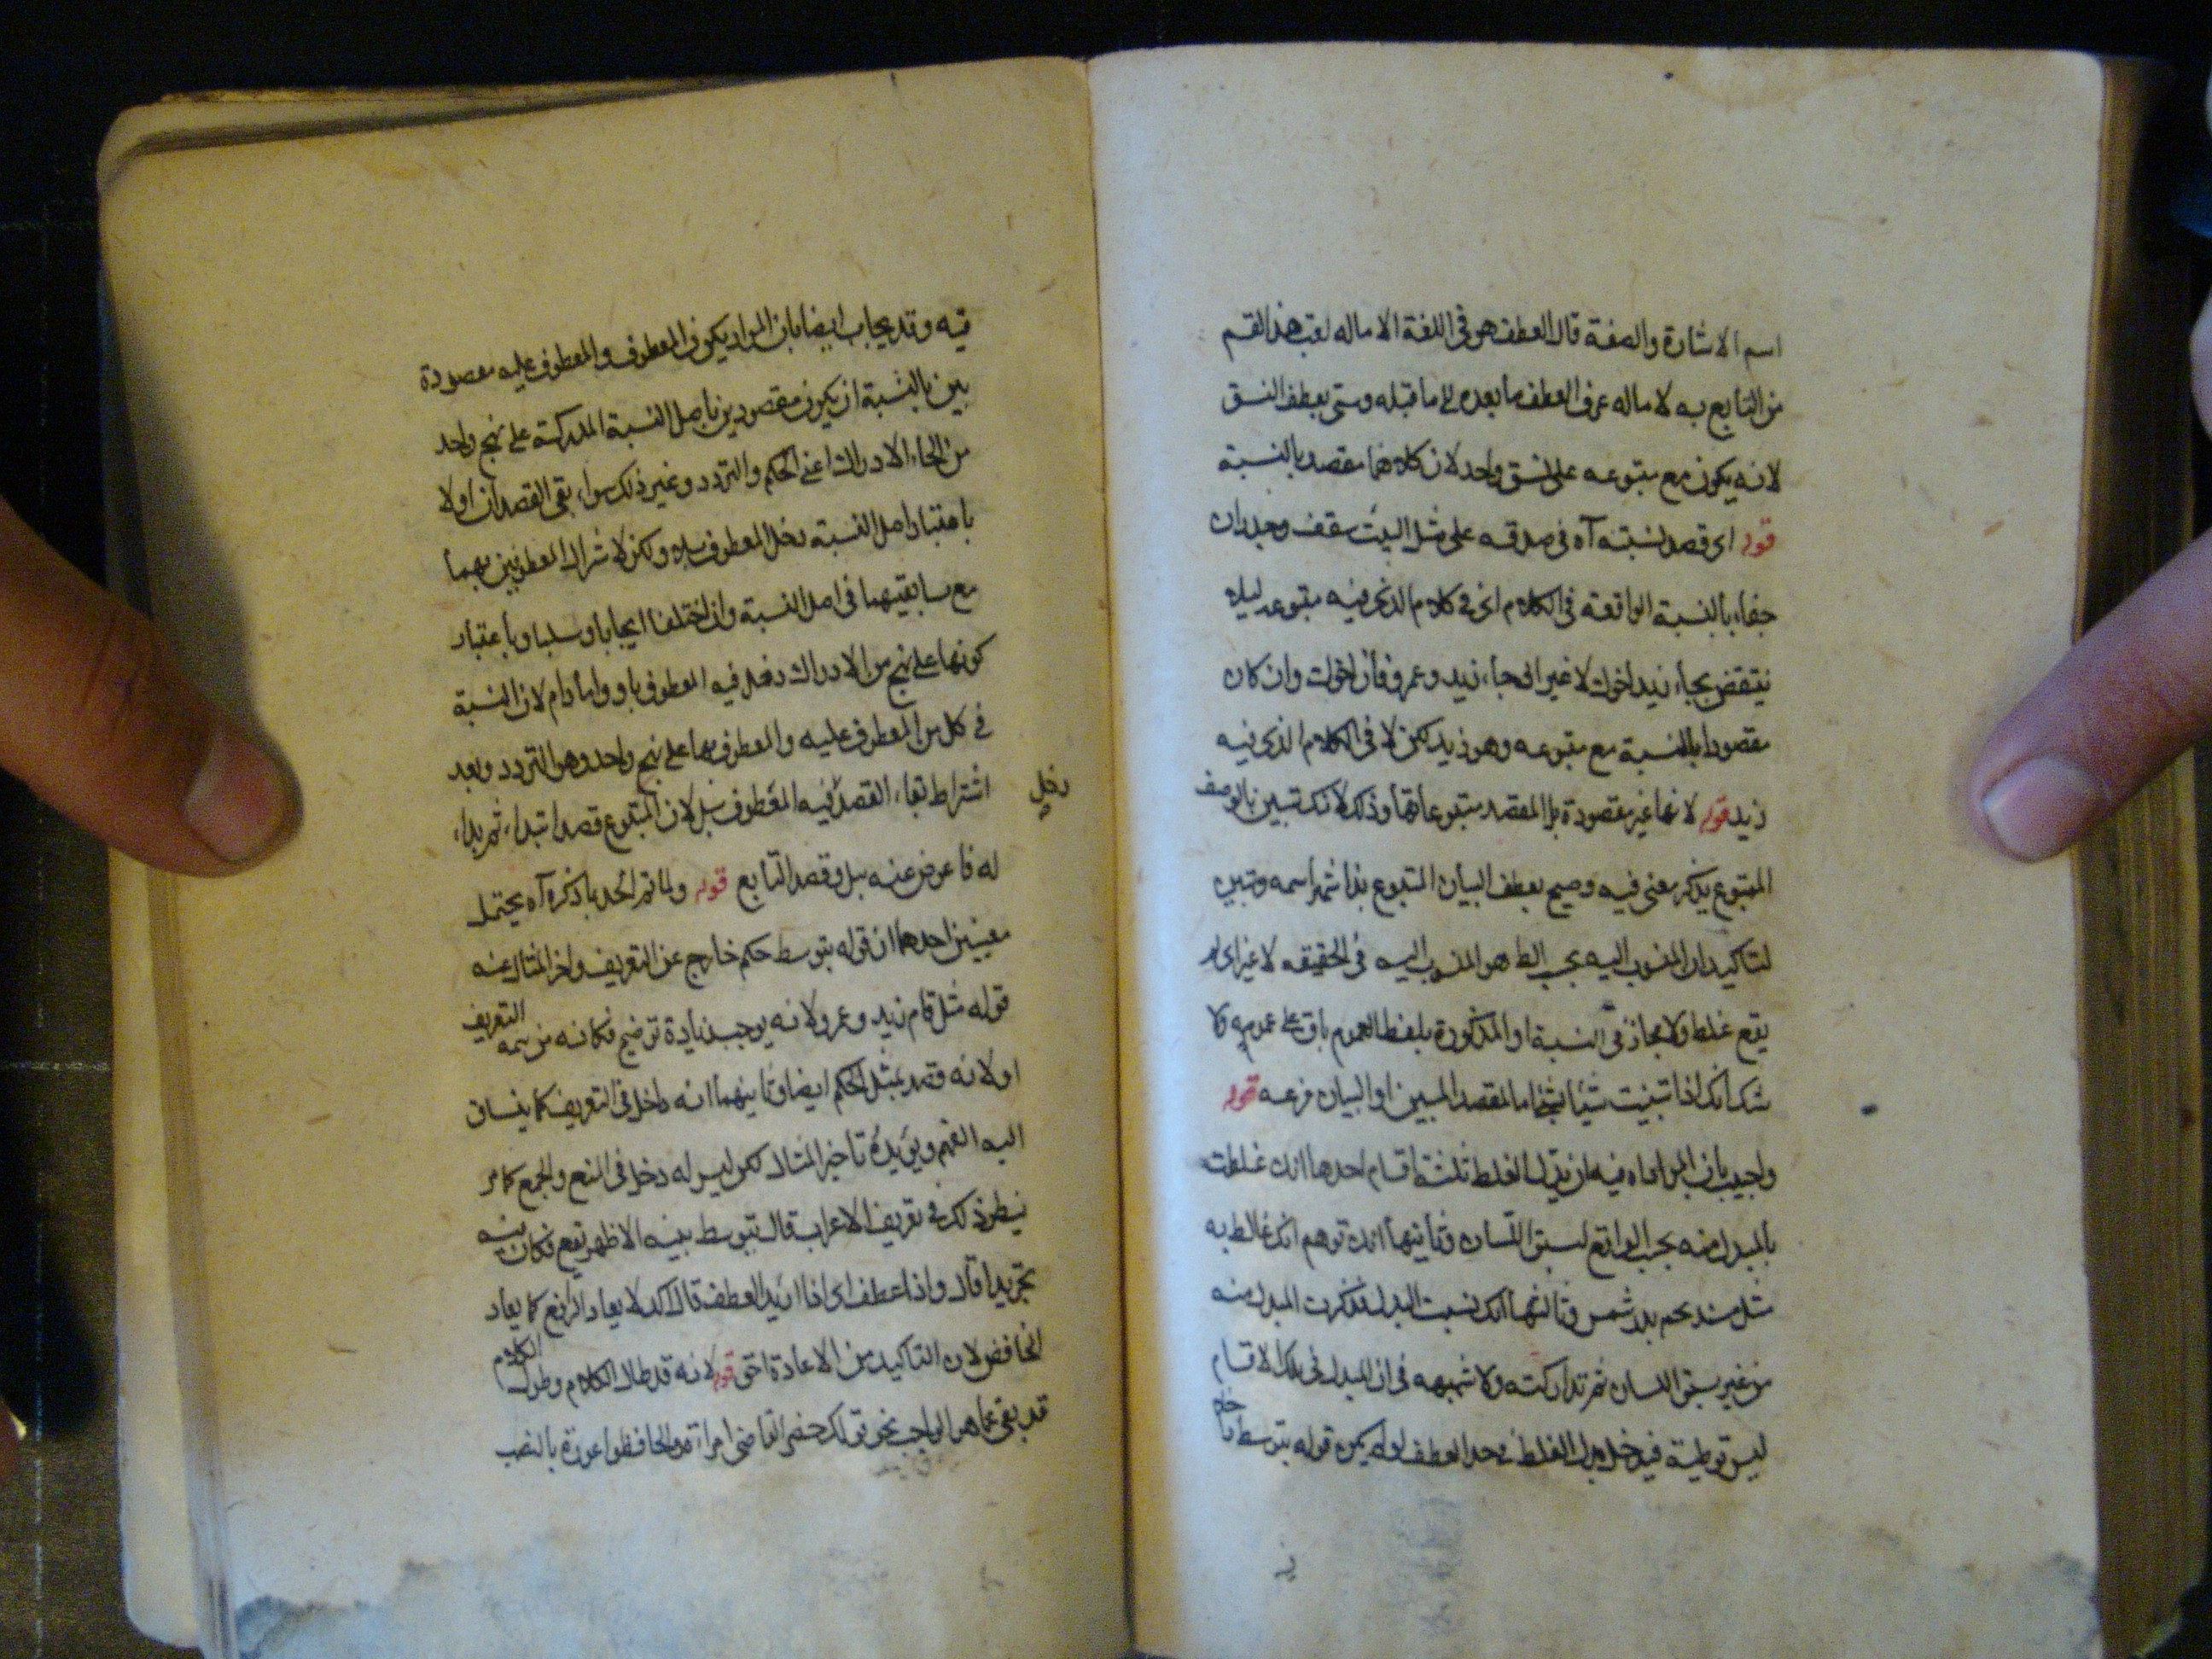 اسم الاشارة والصفة قال العطف هو فى اللغة الاماله لقب هذا القسم
من التابع به لاماله عرف العطف ما بعده الى ما قبله وسمى بعطف النسق
لانه يكون مع متبوعه على نسق واحد لان كلاهما مقصد بالنسبة
قوله اى قصد نسبته آه فى صدقه على مثل البيت سقف وجدران
خفاء بالنسبة الواقعة فى الكلام اى فى كلام الذى فيه متبوعه ليلا
ينتقض بجاء زيد اخوك لا غير اى جاء زيد وعمرو فان اخوك وان كان
مقصودا بالنسبة مع متبوعه وهو زيد لكن لا فى الكلام الذى فيه
زيد قوله لانها غير مقصودة بل المقصد متبوعاتها وذلك لانك تبين بالوصف
المتبوع بذكر معنى فيه وصح بعطف البيان المتبوع بذا شهر اسمه وتبين
لتاكيد ان المنسوب اليه بحسب الظ هو المنسوب اليه فى الحقيقه لا غير اى لم
يقع غلط ولا مجاز فى النسبة او المذكورة بلفظ العموم باق على عمومه ولا
شك انك اذا تبينت شيئا بشئ اما المقصد المبين او البيان فرعه قوله
واجيب بان المراد اه فيه ان بدل الغلط ثلثة اقسام احدها انك غلطت
بالمبدل منه بحسب الواقع لسبق اللسان وثانيها انك توهم انك غالط به
مثل هند نجم بدر شمس وثالثها انك نسيت البدل فذكرت المبدل منه
من غير سبق اللسان ثم تداركته ولا شبهه فى ان المبدل فى تلك الاقسام
ليس توطية فيدخل بدل الغلط فى حد العطف لو لم يكن قوله بتوسط
فيه وقد يجاب ايضا بان المراد بكون المعطوف والمعطوف عليه مقصودة
بين بالنسبة ان يكون مقصودين باصل النسبة المدركة على نهج واحد
من انحاء الادراك اعنى الحكم والتردد وغير ذلك سواء بقى القصد ان اولا
باعتبار اصل النسبة دخل المعطوف بلا ولكن لاشراك المعطوفين بهما
مع سابقيهما فى اصل النسبة وان اختلفا ايجابا وسلبا وباعتبار
كونها على نهج من الادراك دخل فيه المعطوف باو واما وام لان النسبة
فى كل من المعطوف عليه والمعطوف بها على نهج واحد وهو التردد وبعد
اشتراط بقاء القصد فيه المعطوف ببل لان المتبوع قصد ابتداء ثم بداء
دخل
له فاعرض عنه ببل وقصد التابع قوله ولما تم الحد بما ذكره آه يحتمل
معنيين احدهما ان قوله بتوسط حكم خارج عن التعريف واخر المثال عنه
قوله مثل قام زيد وعمرو لانه يوجب زيادة توضيح فكانه من تتمه التعريف
او لانه قصد تمثيل الحكم ايضا وثانيهما انه داخل فى التعريف كما ينساق
اليه الفهم ويؤيده تاخير المثال لكن ليس له دخل فى المنع والجمع كما مر
نظير ذلك فى تعريف الاعراب قال يتوسط بينه الاظهر يقع فكان منه
تجريدا قال واذا عطف اى اذا اريد العطف قال اكد لا يعاد الرافع كما يعاد
الخافض لان التاكيد من الاعادة اخق قوله لانه قد طال الكلام وطول الكلام
قد يغنى عما هو الواجب نحو قولك حضر القاضى امراة والحافظوا عورة بالنصب